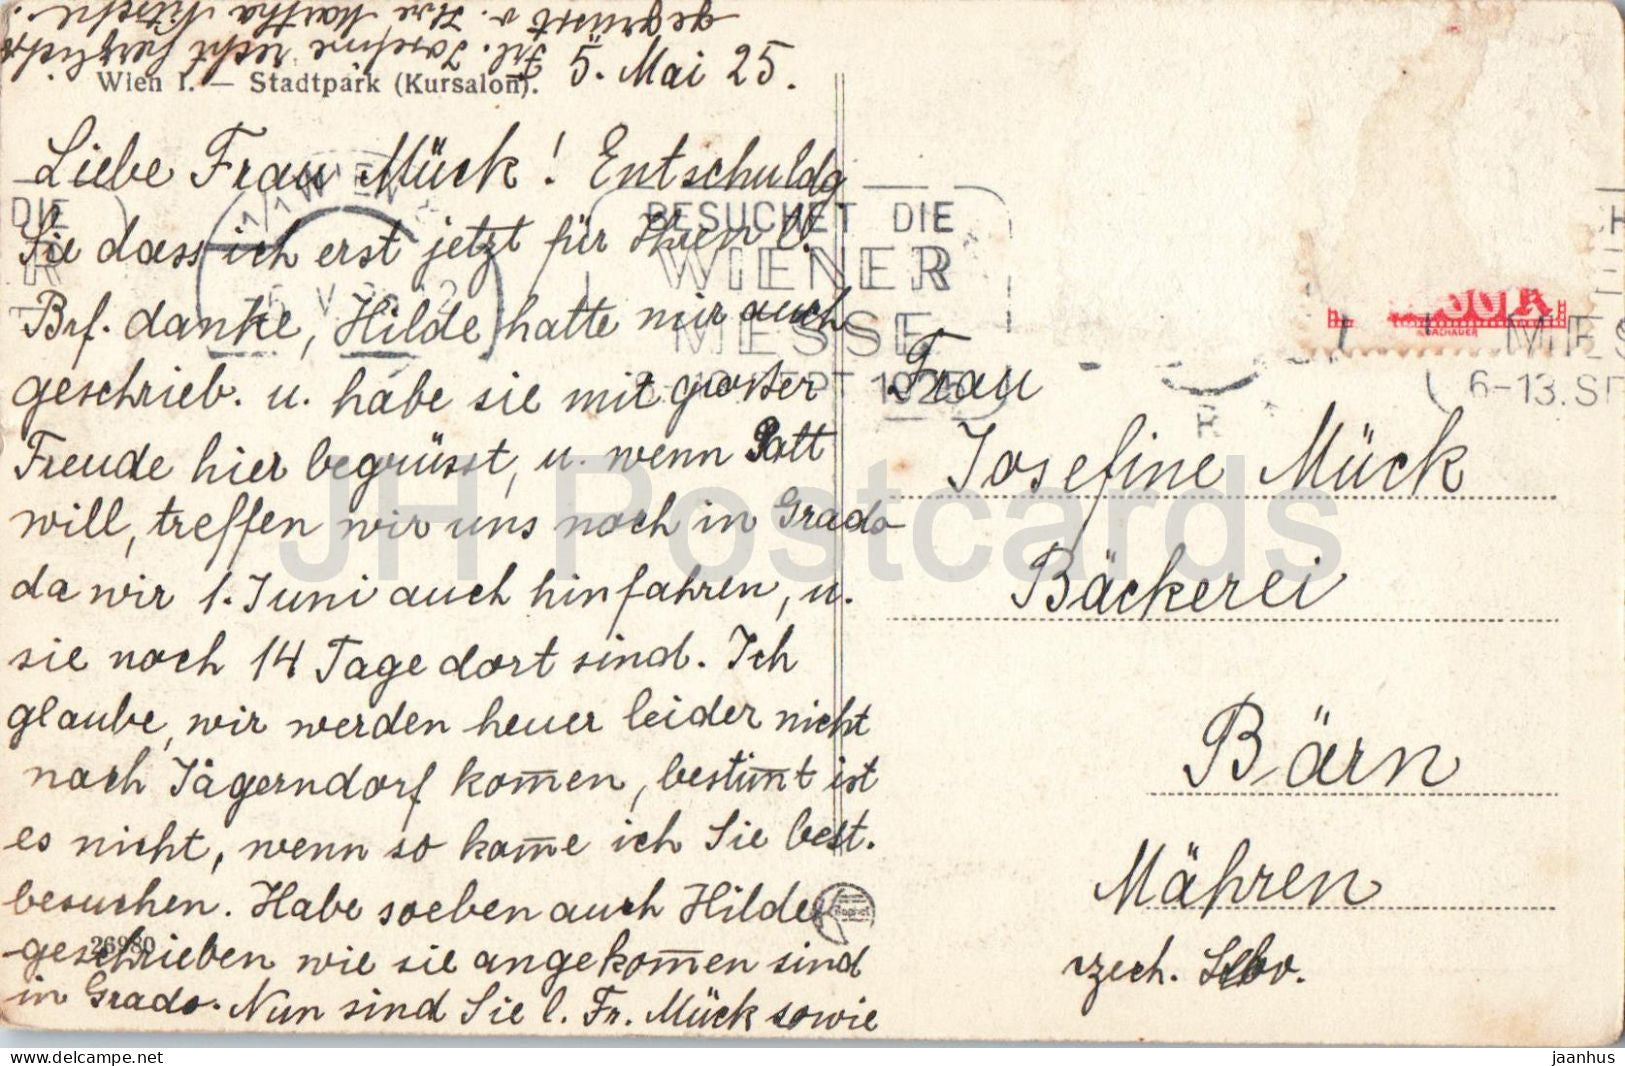 Wien I. — Stadtpark (Kursalon).
5. Mai 25.
Liebe Frau Mück! Entschuldg
Sie dass ich erst jetzt für Ihren l.
Brf. danke, Hilde hatte mir auch
geschrieb. u. habe sie mit grosser
Freude hier begrüsst, u. wenn Gott
will, treffen wir uns noch in Grado
da wir 1. Juni auch hinfahren, u.
sie noch 14 Tage dort sind. Ich
glaube, wir werden heuer leider nicht
nach Jägerndorf kom̅en, bestim̅t ist
es nicht, wenn so kom̅e ich Sie best.
besuchen. Habe soeben auch Hilde
geschrieben wie sie angekom̅en sind
in Grado. Nun sind Sie l. Fr. Mück sowie
Frl. Josefine recht herzlichst
gegrüsst v. Ihre Martha Nitsche.
26980
BESUCHET DIE
WIENER
MESSE
SEPT 1925
1/1 WIEN
DIE
R
6-13. SE
MES
Frau
Josefine Mück
Bäckerei
Bärn
Mähren
czech. Slov.
JH Postcards
www.delcampe.net
jaanhus